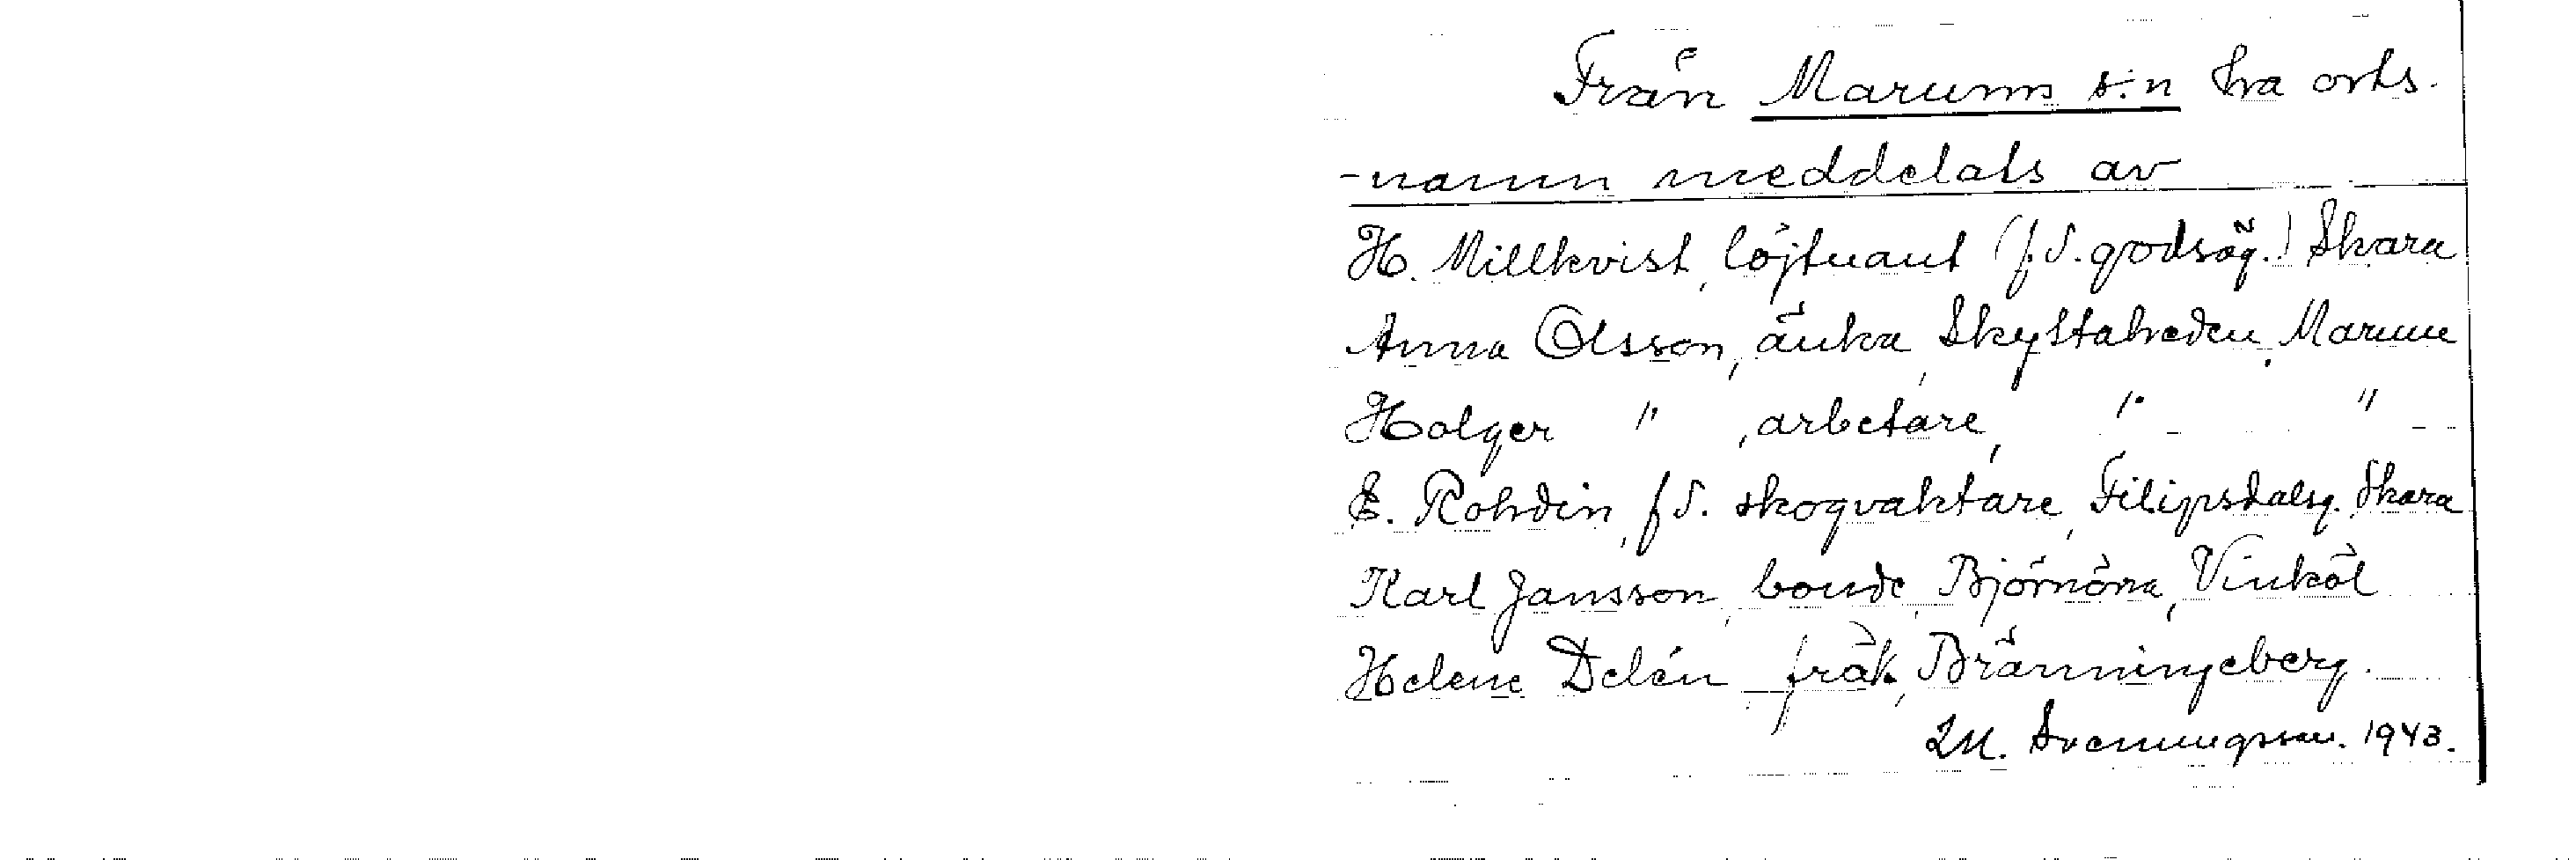 Från Marums s:n ha orts-
-namn meddelats av
H. Millkvist, löjtnant (f.d. godsäg.) Skara
Anna Olsson, änka, Skystaheden, Marum
Holger " , arbetare, " "
E. Rohdin, f d. skogvaktare, Filipsdalsg. Skara
Karl Jansson, bonde, Björnöna, Vinköl
Helene Delén, frök., Bränningeberg.
M. Svenungsson. 1943.